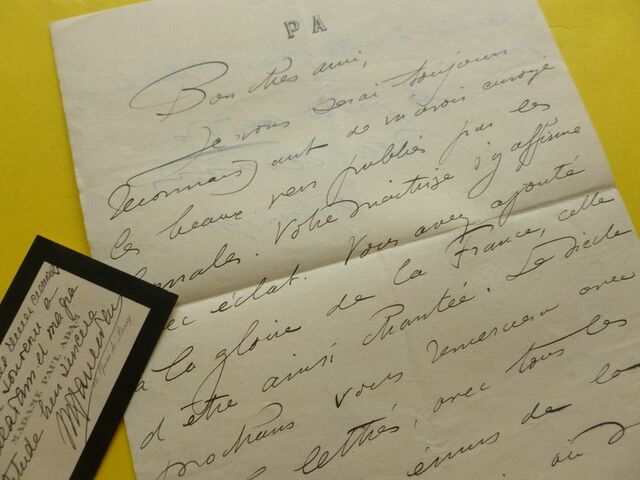 P A
Bon cher ami,
Je vous serai toujours
reconnaissant de m'avoir envoyé
les beaux vers publiés par les
Annales. Votre maîtrise s'y affirme
avec éclat. Vous avez ajouté
à la gloire de la France, celle
d'être ainsi chantée. Le siècle
prochain vous remerciera avec
lettrés, avec tous les
émus de la
où
souvenir à
Madam et ma gra
titude bien sincère
MADAME PAUL ADAM